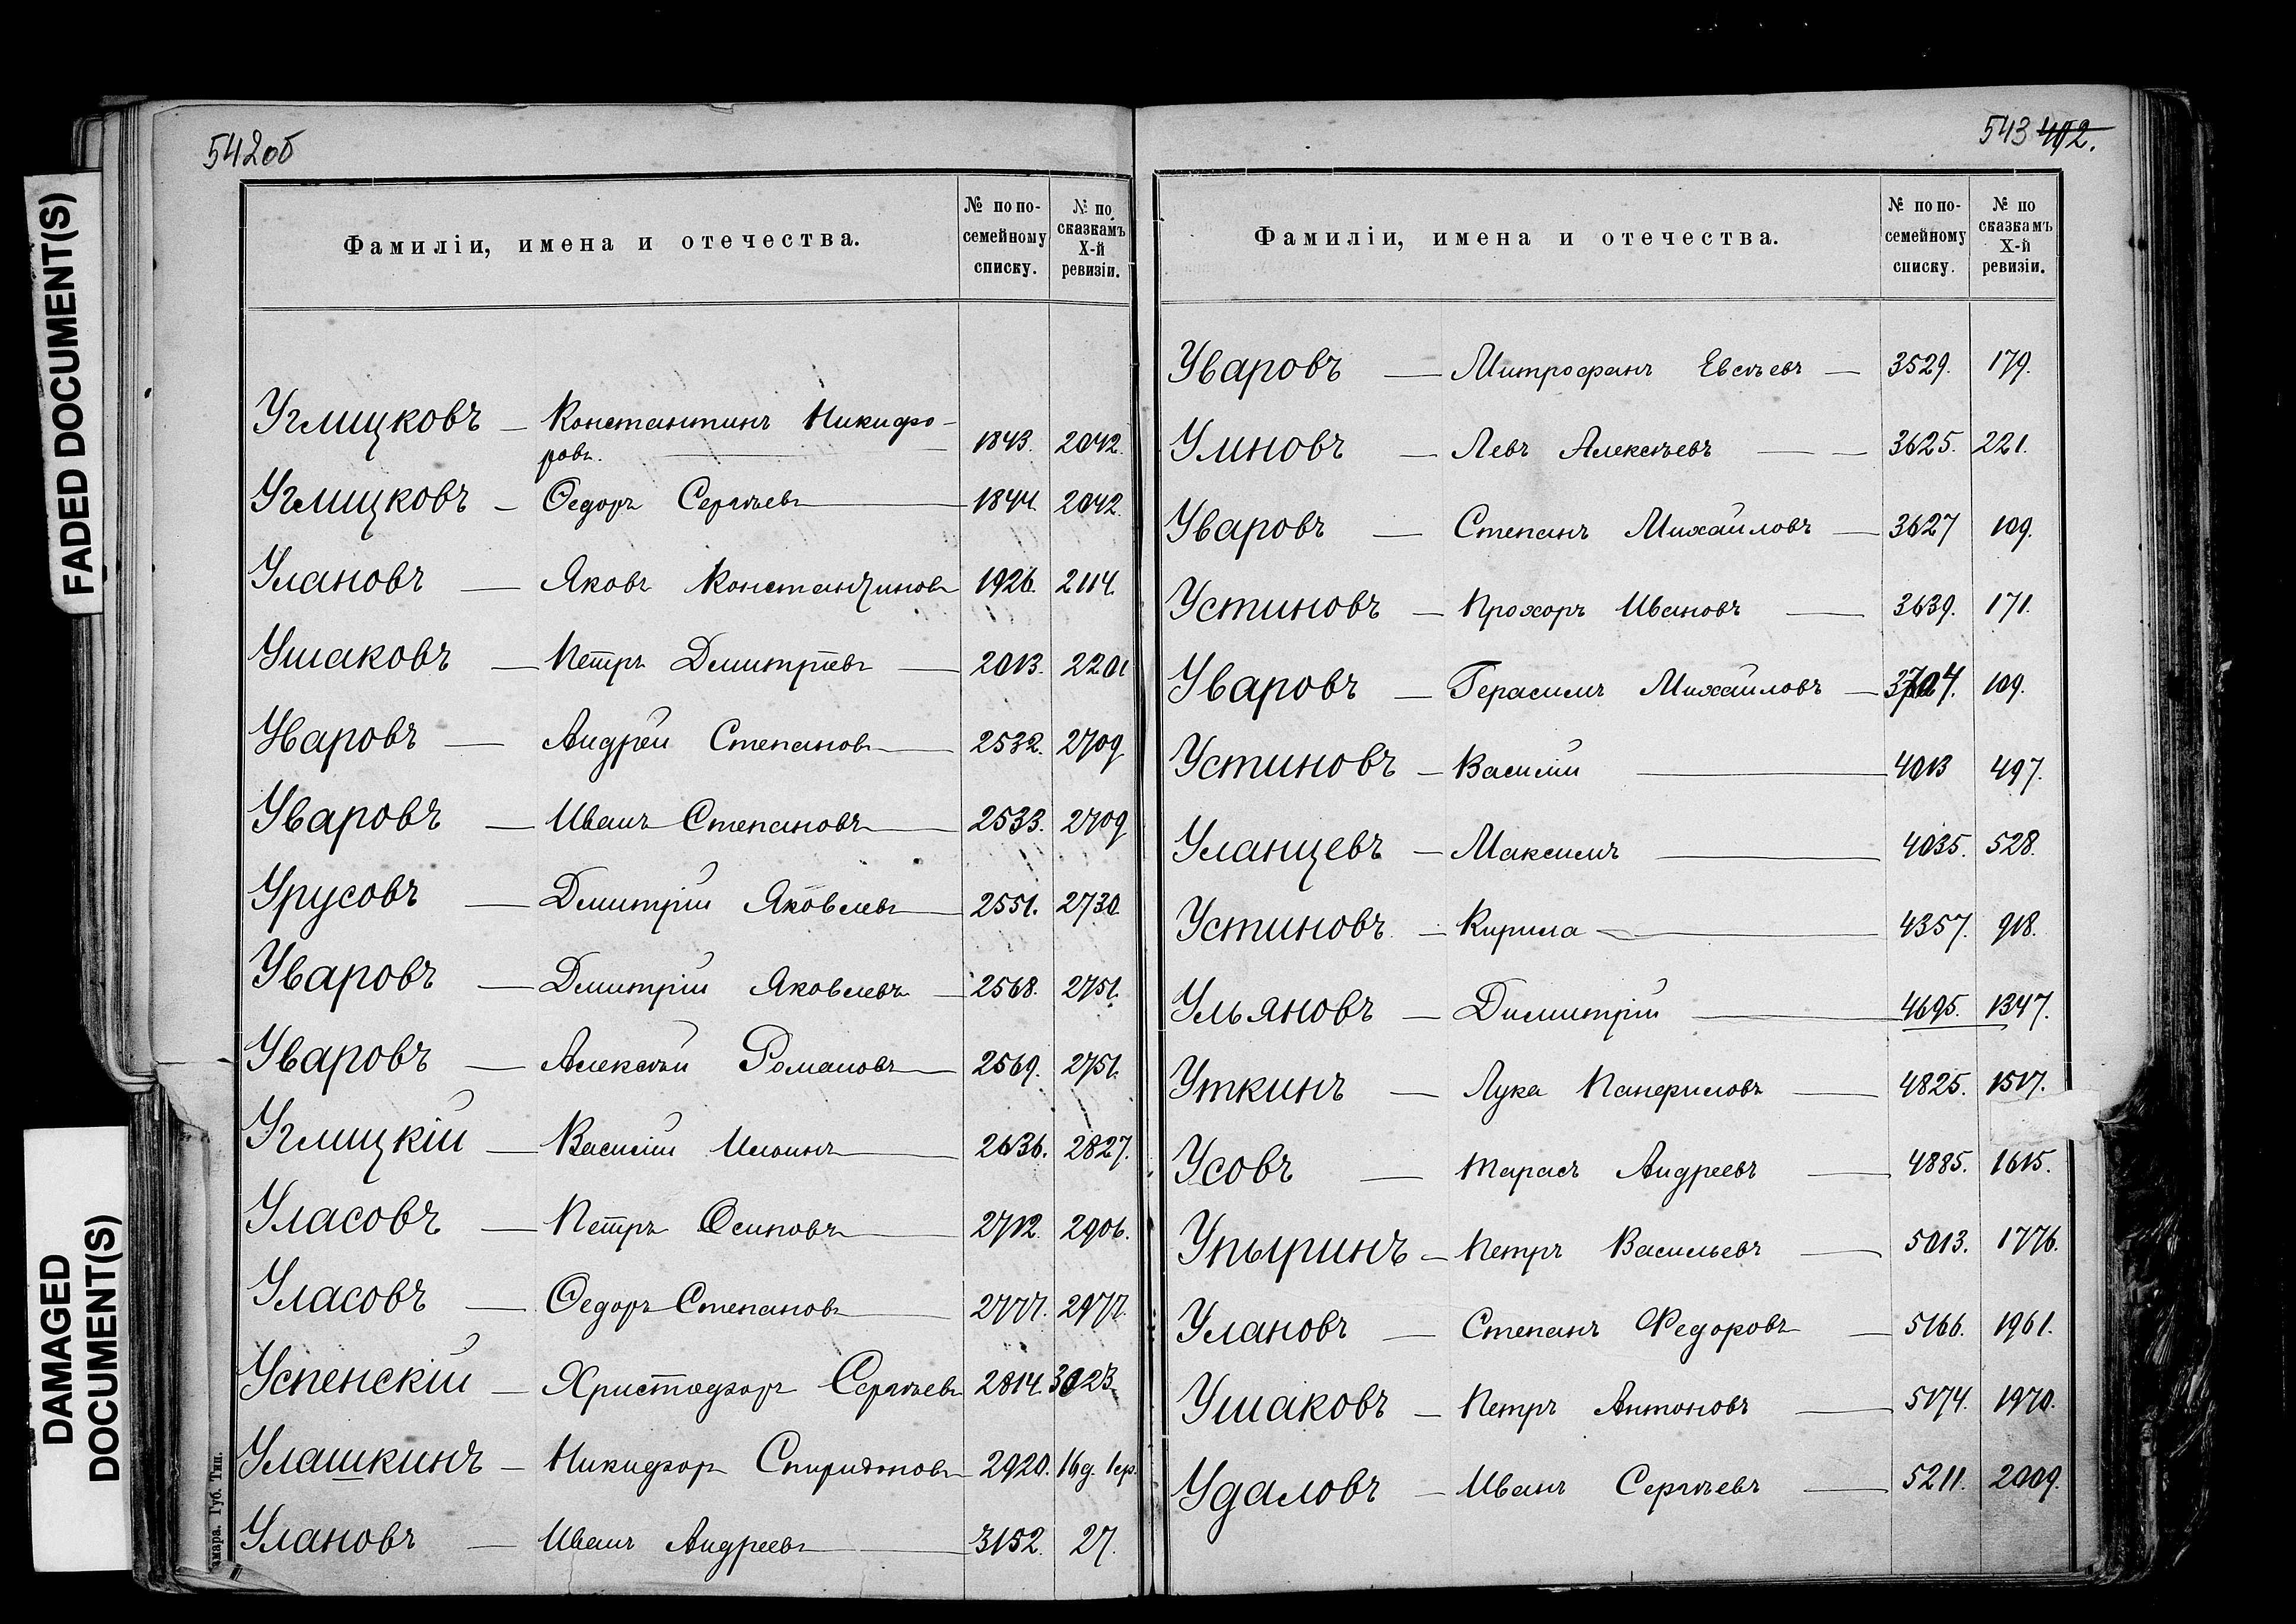 542об
Фамиліи, имена и отечества. № по посемейному списку. № по сказкамъ X-й ревизіи.
Углицковъ — Константинъ Никифо-
ровъ. — 1843. 2042.
Углицковъ — Ѳедоръ Сергѣевъ — 1844. 2042.
Улановъ — Яковъ Константиновъ 1926. 2114.
Ушаковъ — Петръ Дмитріевъ — 2013. 2201
Уваровъ — Андрей Степановъ — 2532. 2709
Уваровъ — Иванъ Степановъ — 2533. 2709
Урусовъ — Дмитрій Яковлевъ — 2551. 2730.
Уваровъ — Дмитрій Яковлевъ — 2568. 2751.
Уваровъ — Алексѣй Романовъ — 2569. 2751.
Углицкій — Василій Ильинъ — 2636. 2827.
Уласовъ — Петръ Осиповъ — 2712. 2906.
Уласовъ — Ѳедоръ Степановъ — 2777. 2977.
Успенскій — Христофоръ Сергѣевъ 2814. 3023.
Улашкинъ — Никифоръ Спиридоновъ — 2920. 16д. 1ср.
Улановъ — Иванъ Андреевъ — 3152. 27.
Губ. Тип.
DAMAGED DOCUMENT(S)
FADED DOCUMENT(S)
543 402.
Фамиліи, имена и отечества. № по посемейному списку. № по сказкамъ X-й ревизіи.
Уваровъ — Митрофанъ Евсѣевъ — 3529. 179.
Умновъ — Левъ Алексѣевъ — 3625. 221.
Уваровъ — Степанъ Михайловъ — 3627 109.
Устиновъ — Прохоръ Ивановъ — 3639. 171.
Уваровъ — Герасимъ Михайловъ — 3704. 109.
Устиновъ — Василій — 4013 497.
Уланцевъ — Максимъ — 4035. 528.
Устиновъ — Кирила — 4357. 918.
Ульяновъ — Димитрій — 4695. 1347.
Уткинъ — Лука Панфиловъ — 4825. 1517.
Усовъ — Тарасъ Андреевъ — 4885. 1615.
Упыринъ — Петръ Васильевъ — 5013. 1776.
Улановъ — Степанъ Федоровъ — 5166. 1961.
Ушаковъ — Петръ Антоновъ — 5174. 1970.
Удаловъ — Иванъ Сергѣевъ — 5211. 2009.